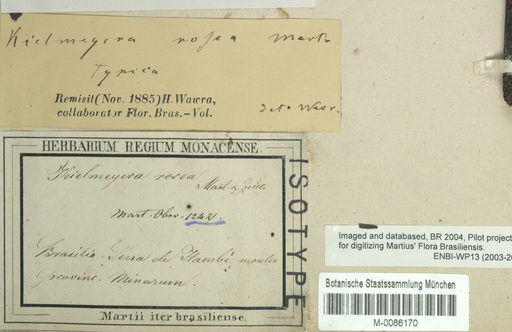 Kielmeyera rosea Mart
typica
Remisit (Nov. 1885) H. Wawra,
collaborator Flor. Bras.-Vol.
det. Wawr.
HERBARIUM REGIUM MONACENSE.
Kielmeyera rosea
Mart. & Zucc.
Mart. Obs. 1242.
Brasilia. Serra de Itambé montes
Provinc. Minarum.
Martii iter brasiliense.
ISOTYPE
Imaged and databased, BR 2004, Pilot project
for digitizing Martius' Flora Brasiliensis.
ENBI-WP13 (2003-20
Botanische Staatssammlung München
M-0086170